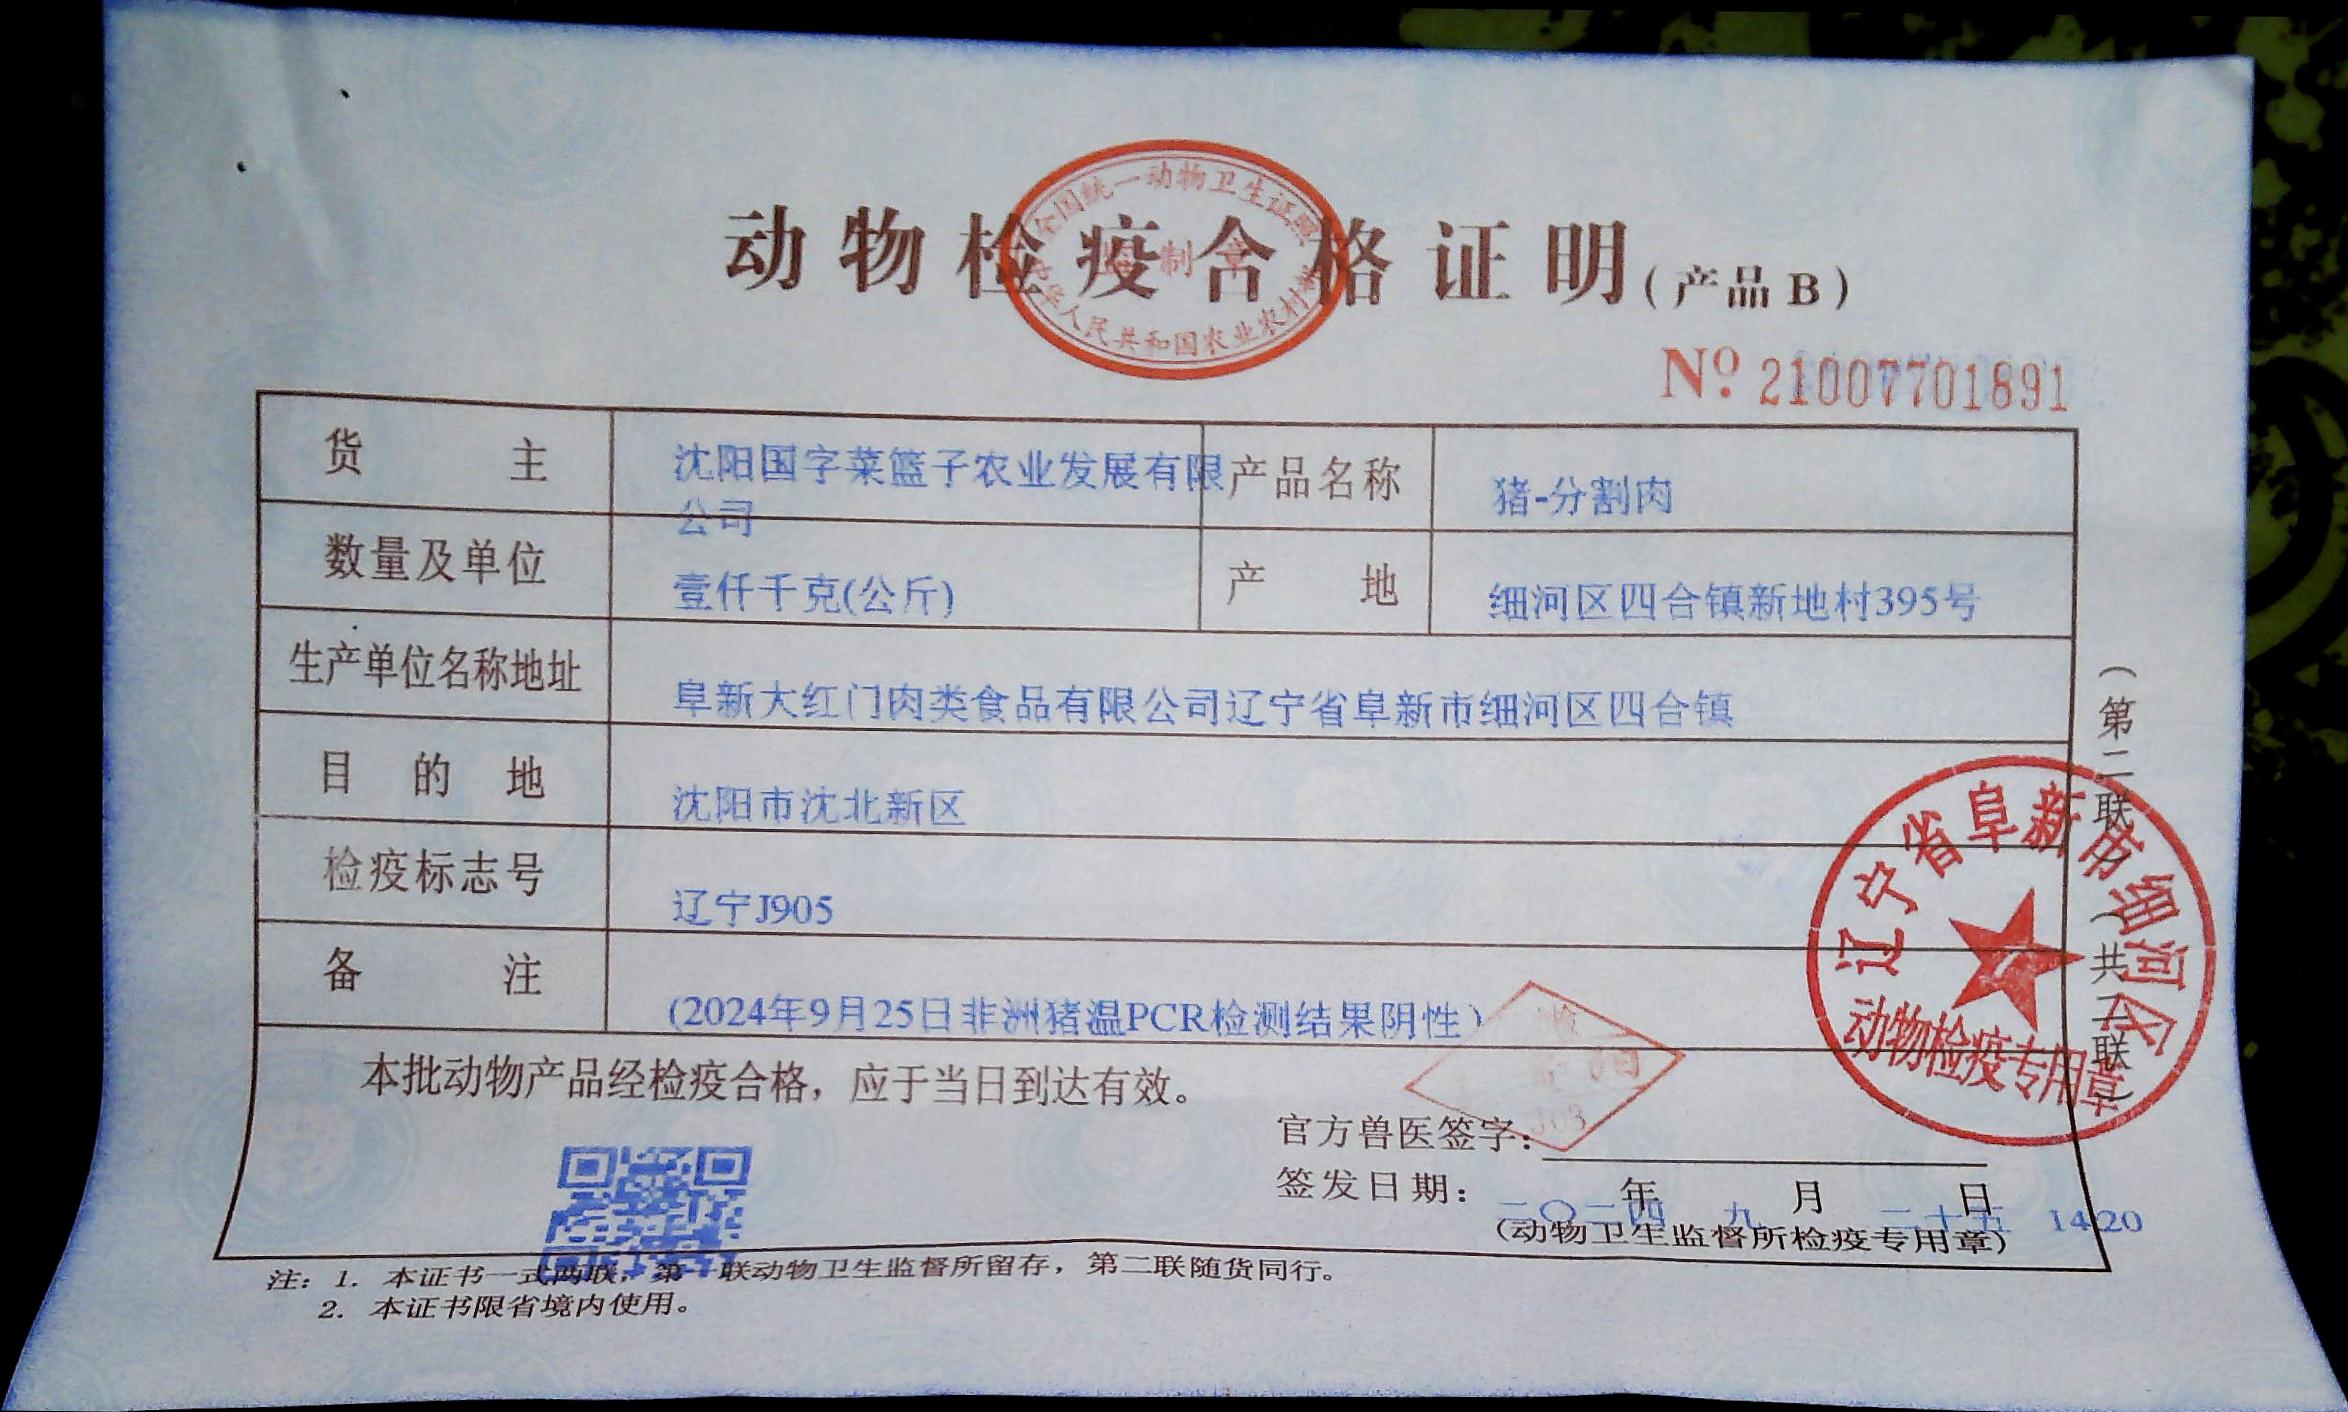 全国统一动物卫生证照
监制章
中华人民共和国农业农村部
动物检疫合格证明(产品B)
№ 21007701891
货主 沈阳国字菜篮子农业发展有限公司 产品名称 猪-分割肉
数量及单位 壹仟千克(公斤) 产地 细河区四合镇新地村395号
生产单位名称地址 阜新大红门肉类食品有限公司辽宁省阜新市细河区四合镇
目的地 沈阳市沈北新区
检疫标志号 辽宁J905
备注 (2024年9月25日非洲猪温PCR检测结果阴性)
本批动物产品经检疫合格，应于当日到达有效。
官方兽医签字：
签发日期：二〇二四年九月二十五日 1420
(动物卫生监督所检疫专用章)
注：1. 本证书一式两联，第一联动物卫生监督所留存，第二联随货同行。
2. 本证书限省境内使用。
(第二联)(共二联)
辽宁省阜新市细河区
动物检疫专用章